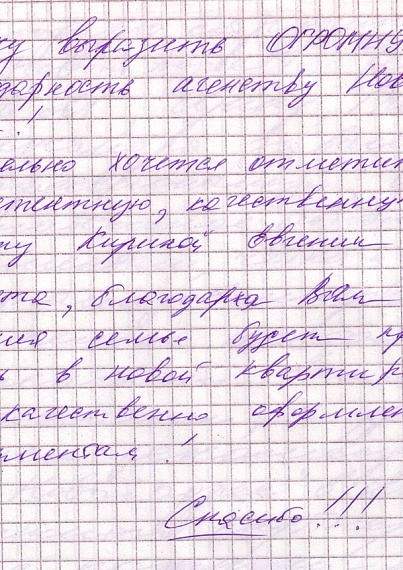 ку выразить ОГРОМНУ
дарность агенству Нов
. !
ельно хочется отметит
етентную, качественну
ту Кириной Евгении
ета, благодаря Вам
шей семье будет пр
ь в новой квартир
качественно оформлен
ументам !
Спасибо !!!